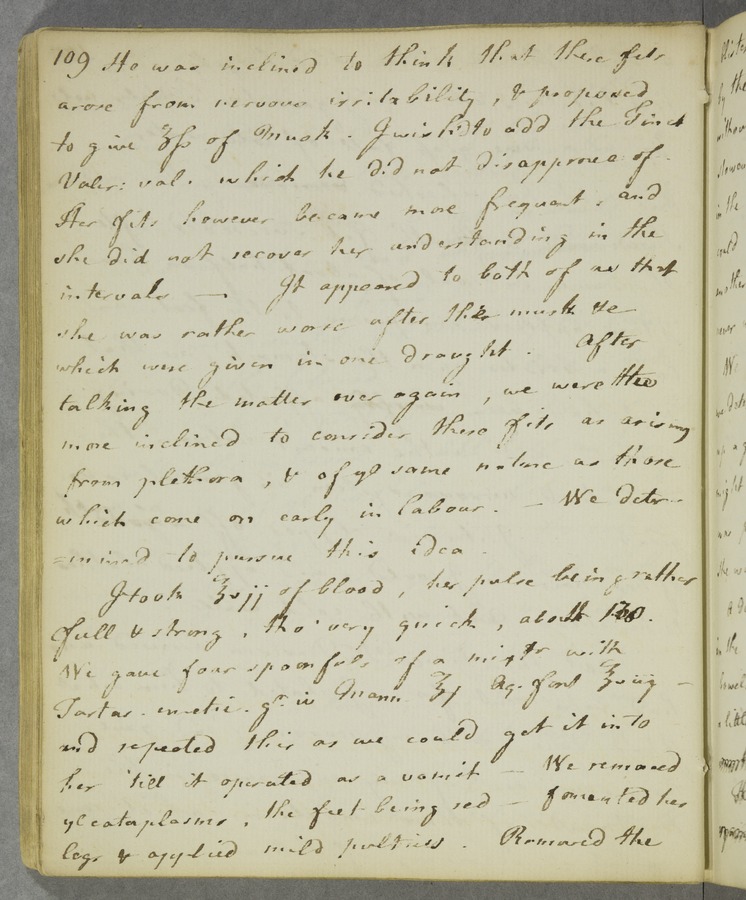 109 He was inclined to think that these fits
arose from nervous irritability, & proposed
to give ʒſs of Musk. I wish'd to add the Tinct
Valer: vol. which he did not disapprove of.
Her fits however became more frequent, and
she did not recover her understanding in the
intervals — It appeared to both of us that
she was rather worse after the musk &c
which were given in one draught. After
talking the matter over again, we were
more inclined to consider these fits as arising
from plethora, & of ye same nature as those
which come on early in labour. — We deter-
=mined to pursue this idea.
I took ℥vjj of blood, her pulse being rather
full & strong, tho' very quick, about 130.
We gave four spoonfuls of a mixtr with
Tartar. emetic. gr. iv Mann ℥j Aq. font ℥viij —
and repeated this as we could get it into
her 'till it operated as a vomit — We removed
ye cataplasms, the feet being red — fomented her
legs & applied mild pultices. Removed the